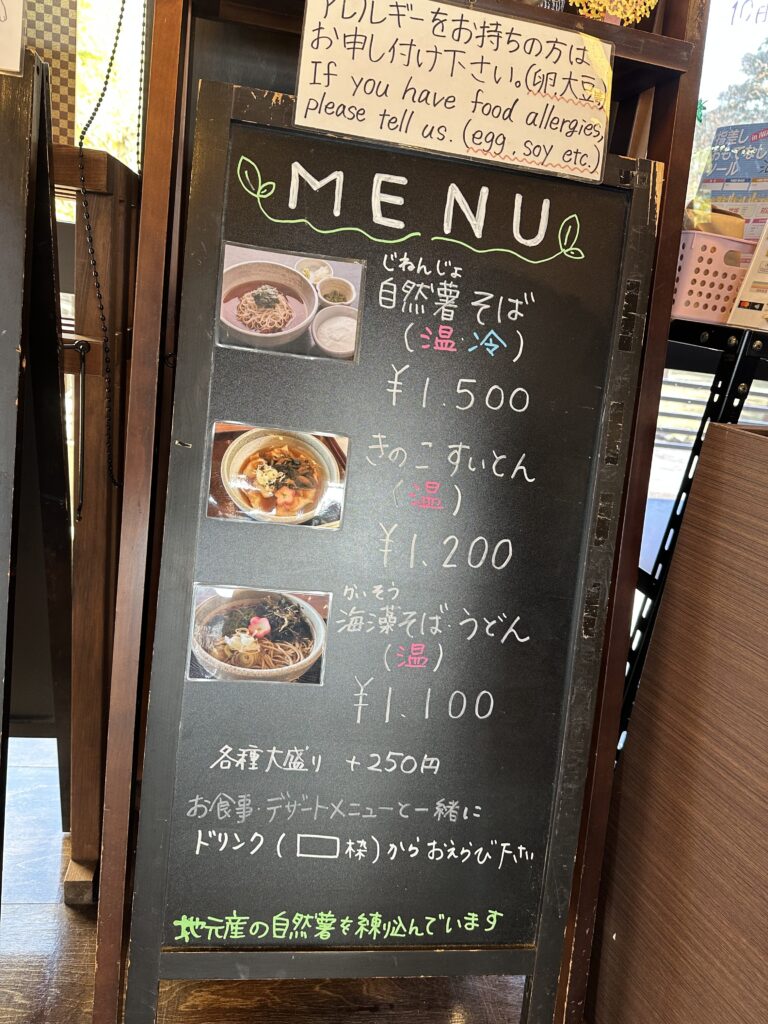 アレルギーをお持ちの方は
お申し付け下さい。(卵大豆)
If you have food allergies,
please tell us. (egg, soy etc.)
MENU
じねんじょ
自然薯そば
(温・冷)
¥1.500
きのこすいとん
(温)
¥1.200
かいそう
海藻そば・うどん
(温)
¥1.100
各種大盛り +250円
お食事・デザートメニューと一緒に
ドリンク(□枠)からおえらび下さい
地元産の自然薯を練り込んでいます
10月
指差し
おもてなし
ツール